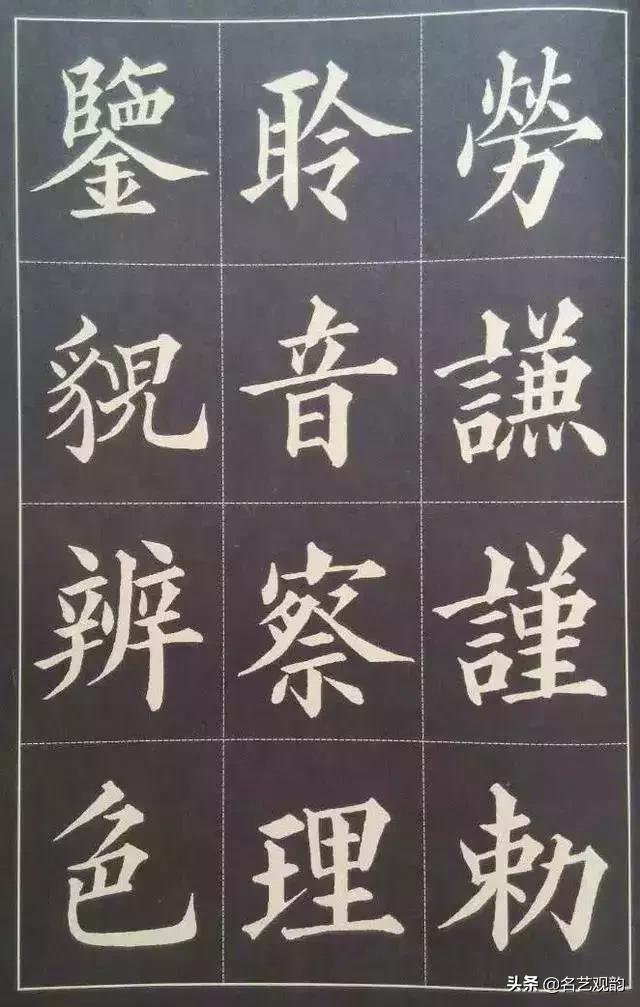 勞謙謹勅
聆音察理
鑒貌辨色
头条 @名艺观韵